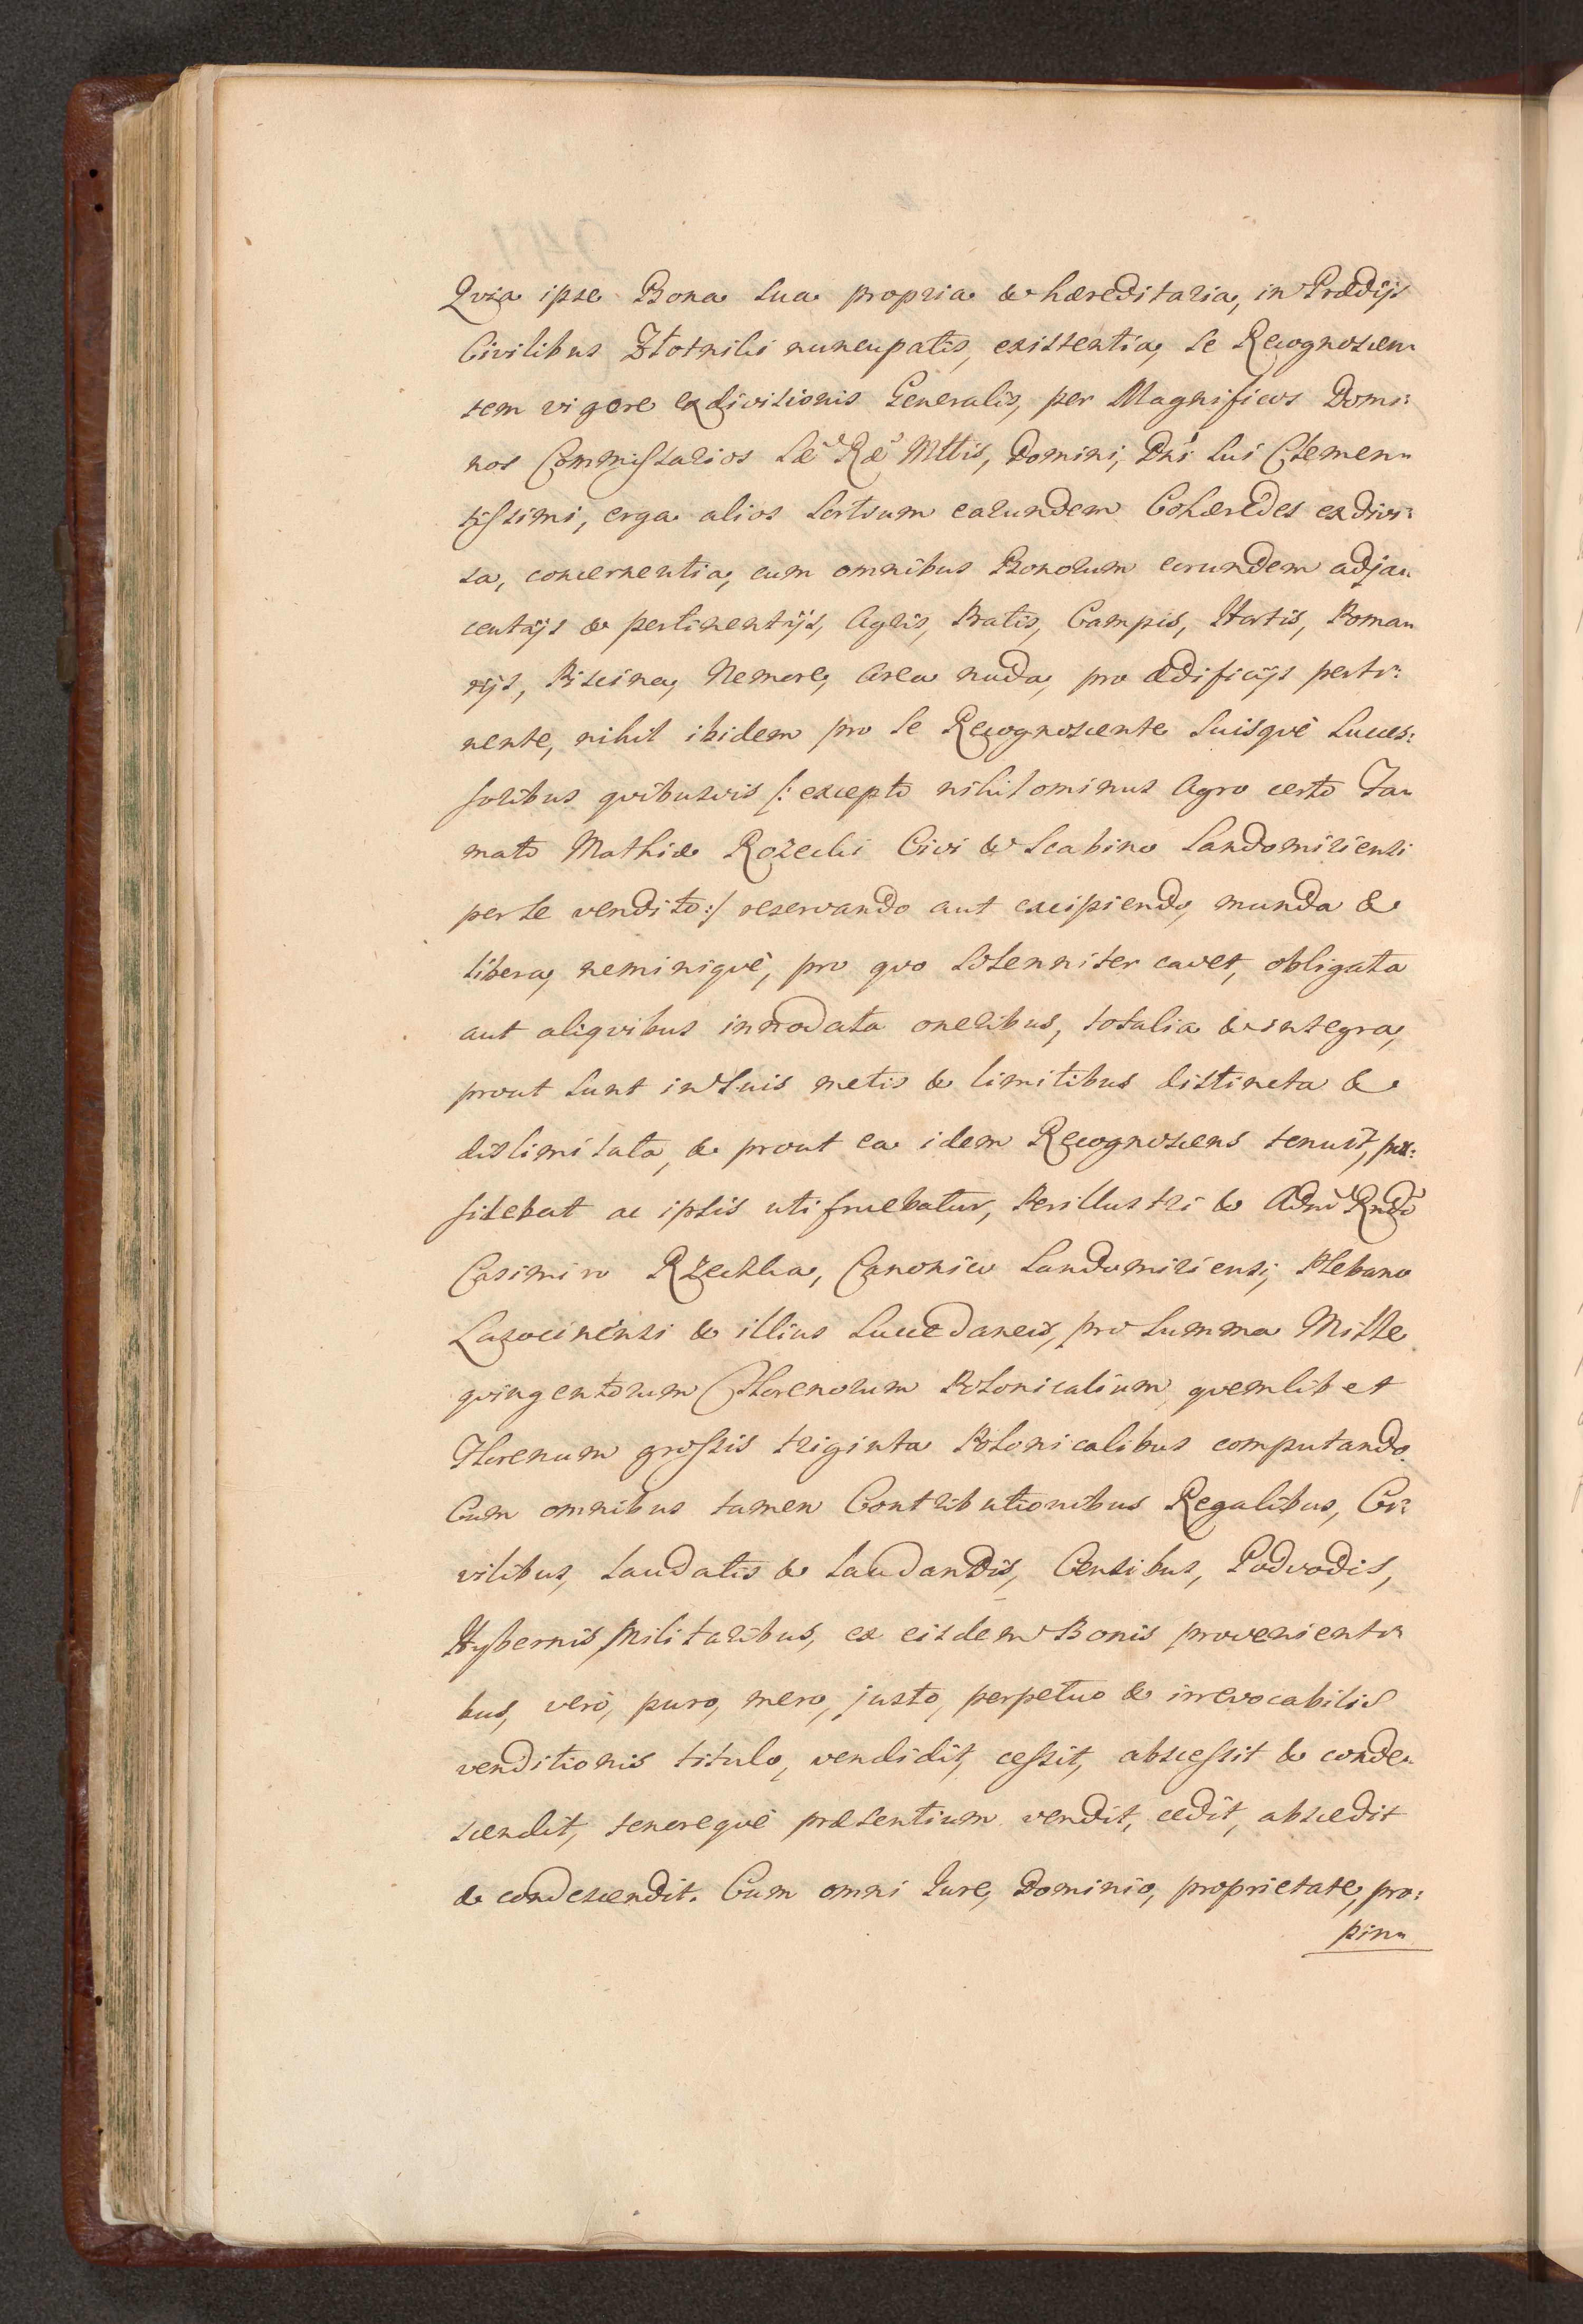 Qvia ipse Bona sua propria & hæreditaria, in Prædijs
Civilibus Złotniki nuncupatis, existentia, se Recognoscen„
tem vigore exdivisionis Generalis, per Magnificos Domi:
nos Commissarios Sæ Ræ Mttis, Domini, Dni sui Clemen„
tissimi, erga alios sortium earundem Cohæredes exdivi:
sa, concernentia, cum omnibus Bonorum eorundem adja„
centijs & pertinentijs, Agris, Pratis, Campis, Hortis, Poma„
rijs, Piscina, Nemore, Area nuda, pro ædificijs perti:
nente, nihil ibidem pro se Recognoscente suisqvè succes:
soribus qvibusvis /: excepto nihilominus Agro certo Fa„
mato Mathiæ Rozecki Civi & Scabino Sandomiriensi
per se vendito :/ reservando aut excipiendo, munda &
libera, neminiqvè, pro qvo solenniter cavet, obligata
aut aliqvibus innodata oneribus, totalia & integra,
prout sunt in suis metis & limitibus distincta &
dislimitata, & prout ea idem Recognoscens tenuit, pos:
sidebat ac ipsis utifruebatur, Perillustri & Admo Rndo
Casimiro Rzeczka, Canonico Sandomiriensi, Plebano
Lasocinensi & illius succedaneis, pro summa Mille
qvingentorum Florenorum Polonicalium, qvemlibet
Florenum grossis triginta Polonicalibus computando.
Cum omnibus tamen Contributionibus Regalibus, Ci:
vilibus, laudatis & laudandis, Censibus, Podvodis,
Hybernis Militaribus, ex eisdem Bonis provenienti„
bus, verò, puro, mero, justo, perpetuo & irrevocabilis
venditionis titulo, vendidit, cessit, abscessit & conde„
scendit, tenoreqvè præsentium vendit, cedit, abscedit
& condescendit. Cum omni Jure, Dominio, proprietate, pro:
pin„